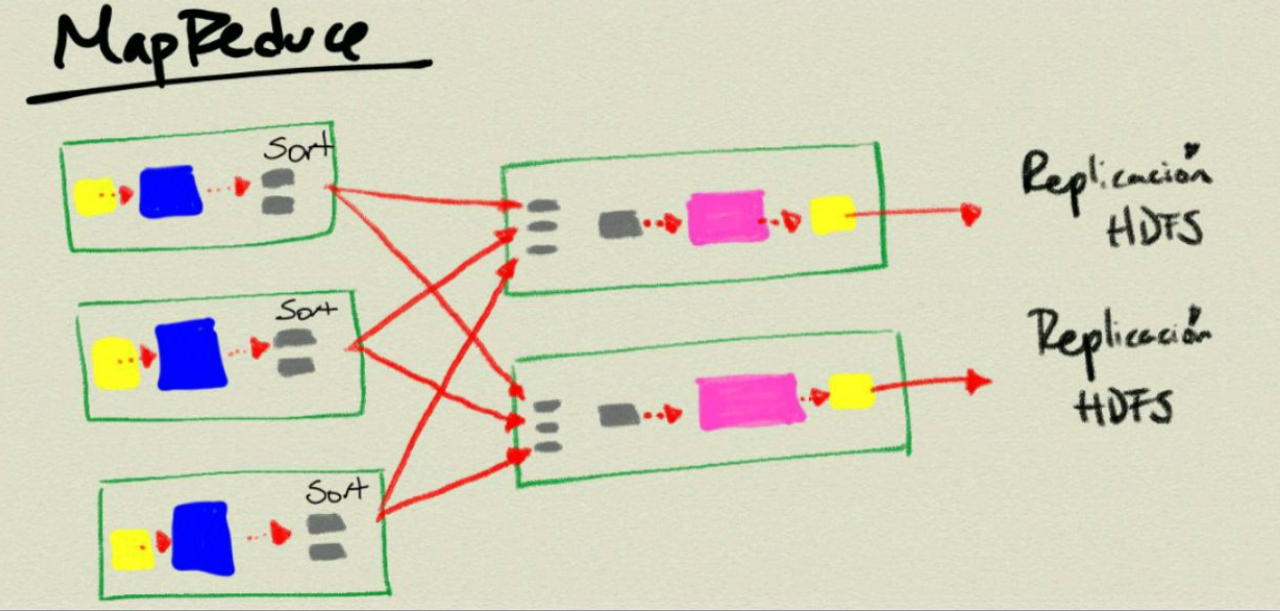 MapReduce
Sort
Sort
Sort
Replicación
HDFS
Replicación
HDFS